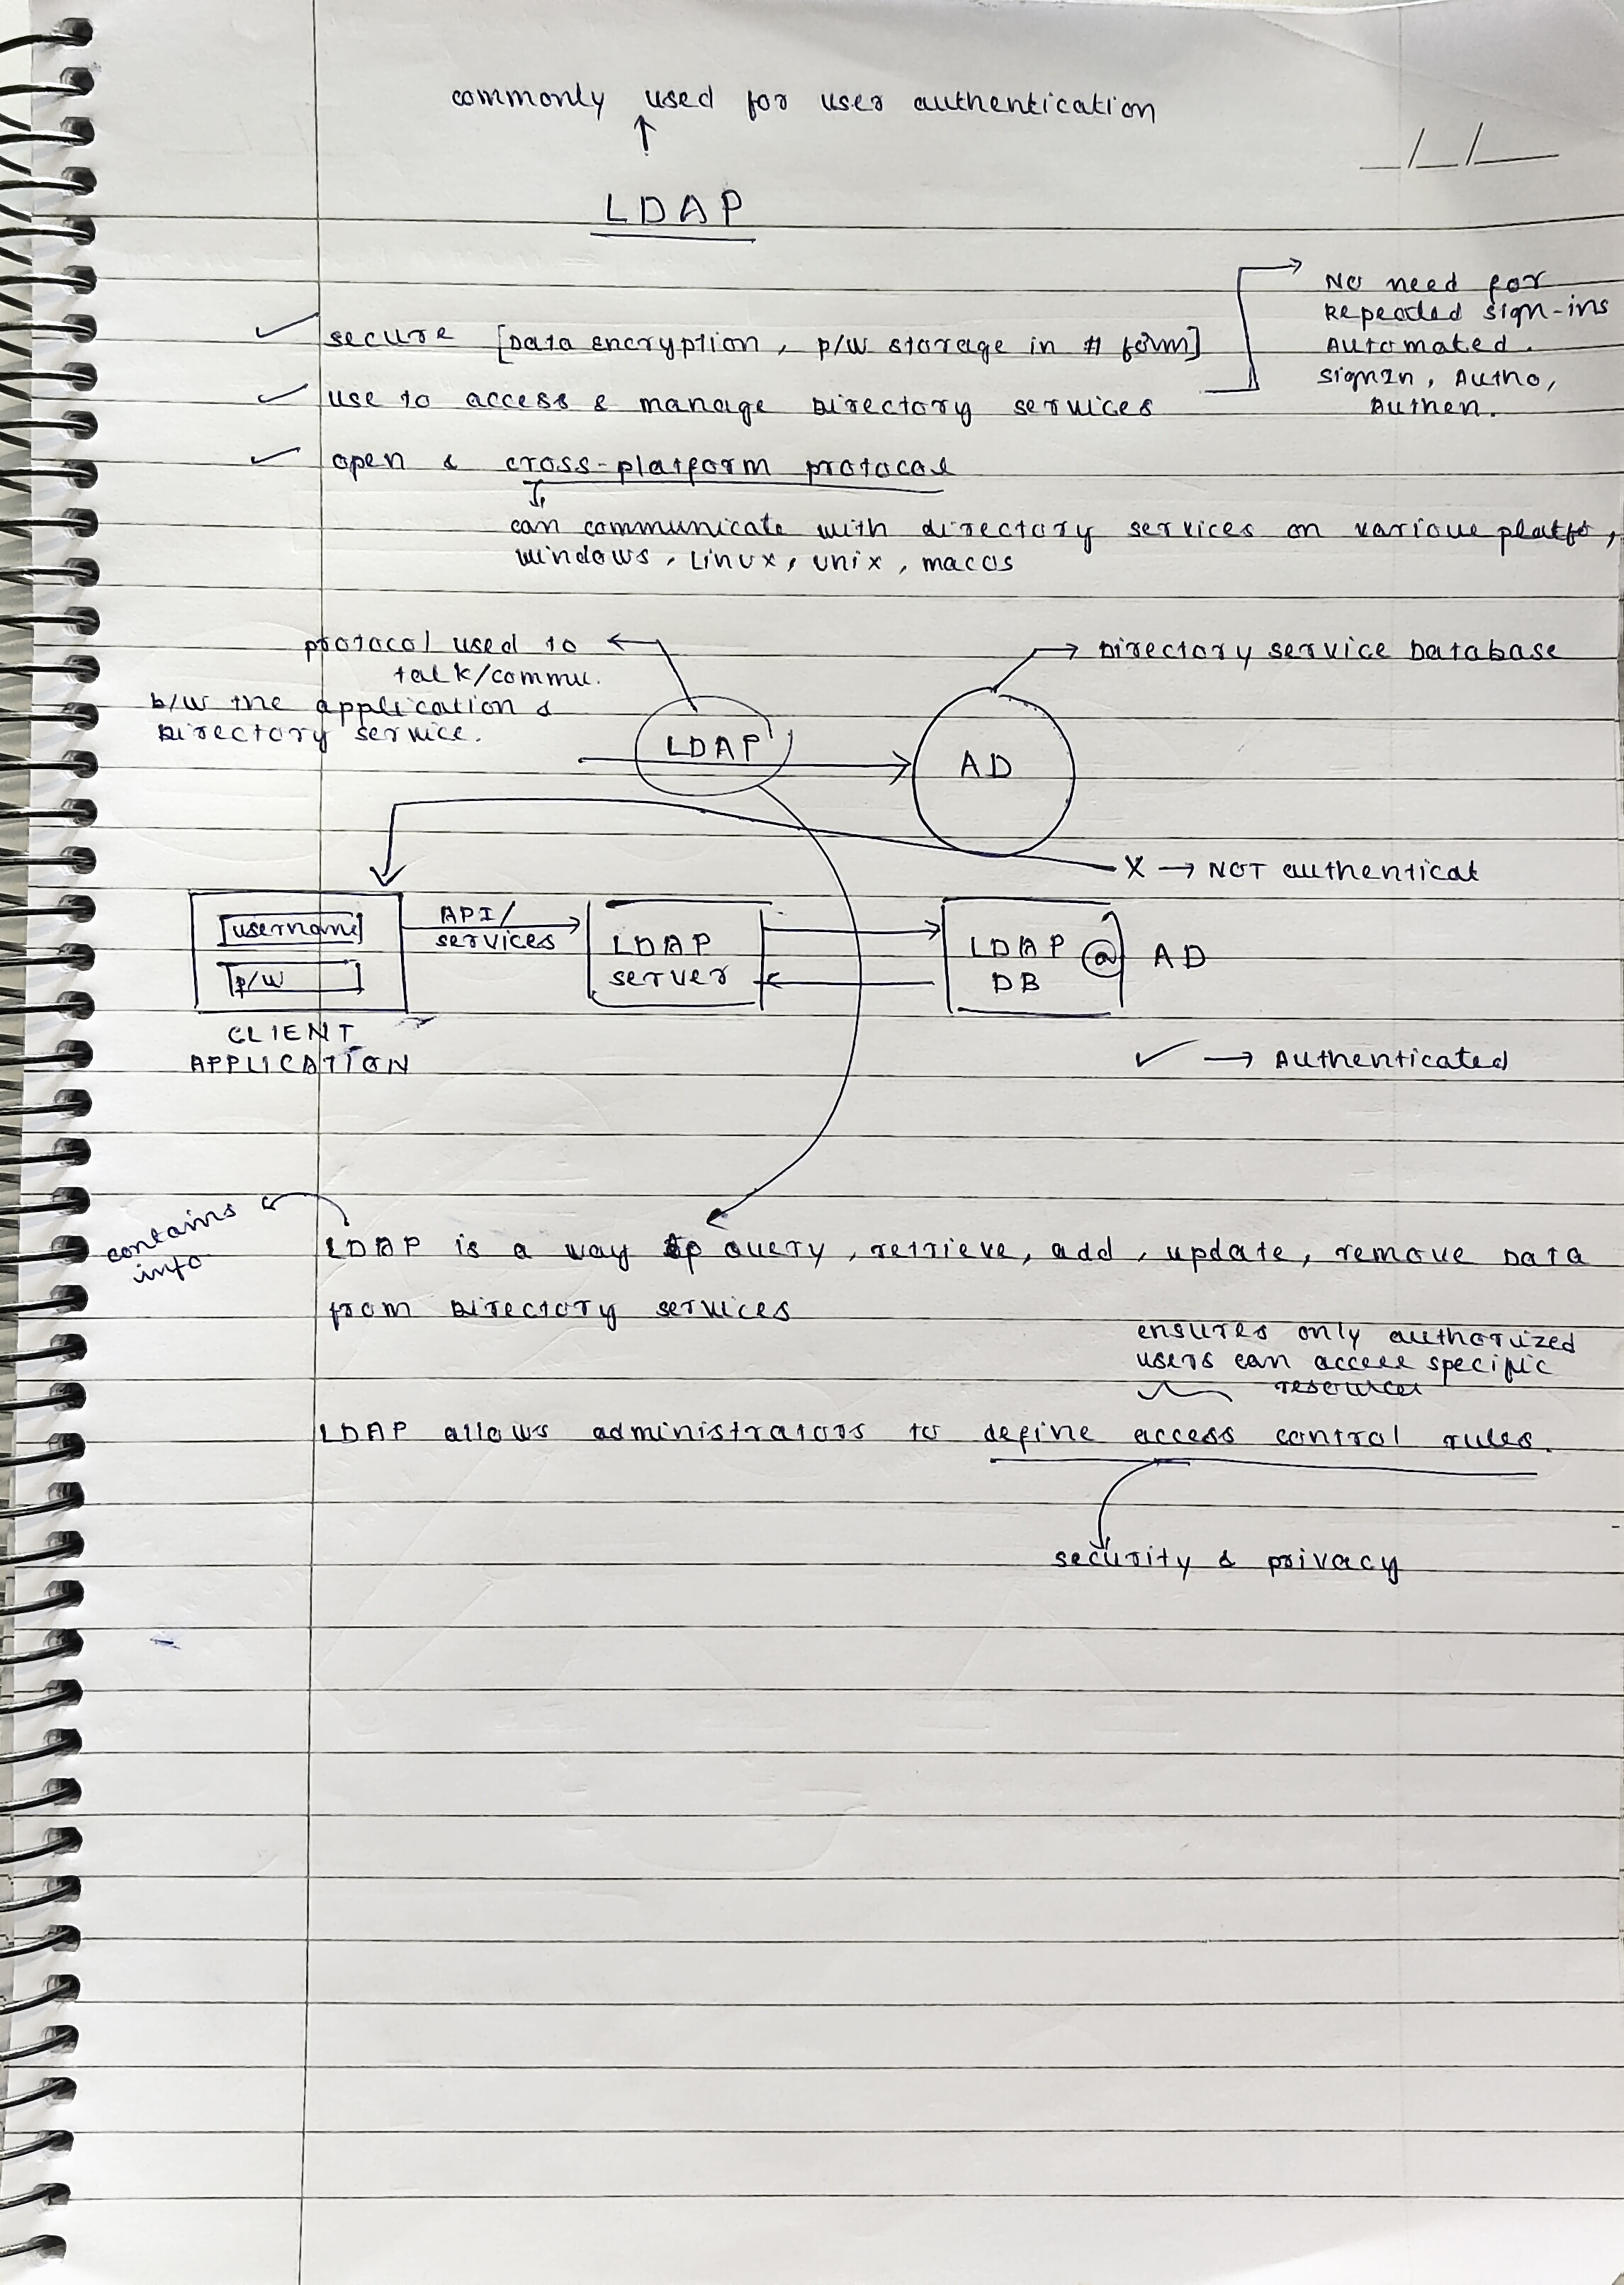 commonly used for user authentication
LDAP
secure [Data encryption, p/w storage in # form]
use to access & manage Directory services
No need for
Repeated sign-ins
Automated.
SignIn, Autho,
Authen.
open & cross-platform protocol
can communicate with directory services on various platfo,
windows, Linux, Unix, macOS
protocol used to
talk/commu.
b/w the application &
Directory service.
LDAP
AD
Directory service Database
X → NOT authenticat
username
p/w
CLIENT
APPLICATION
API/
services
LDAP
server
LDAP @ AD
DB
✓ → Authenticated
contains
info
LDAP is a way to query, retrieve, add, update, remove Data
from Directory services
ensures only authorized
users can access specific
resources
LDAP allows administrators to define access control rules.
security & privacy